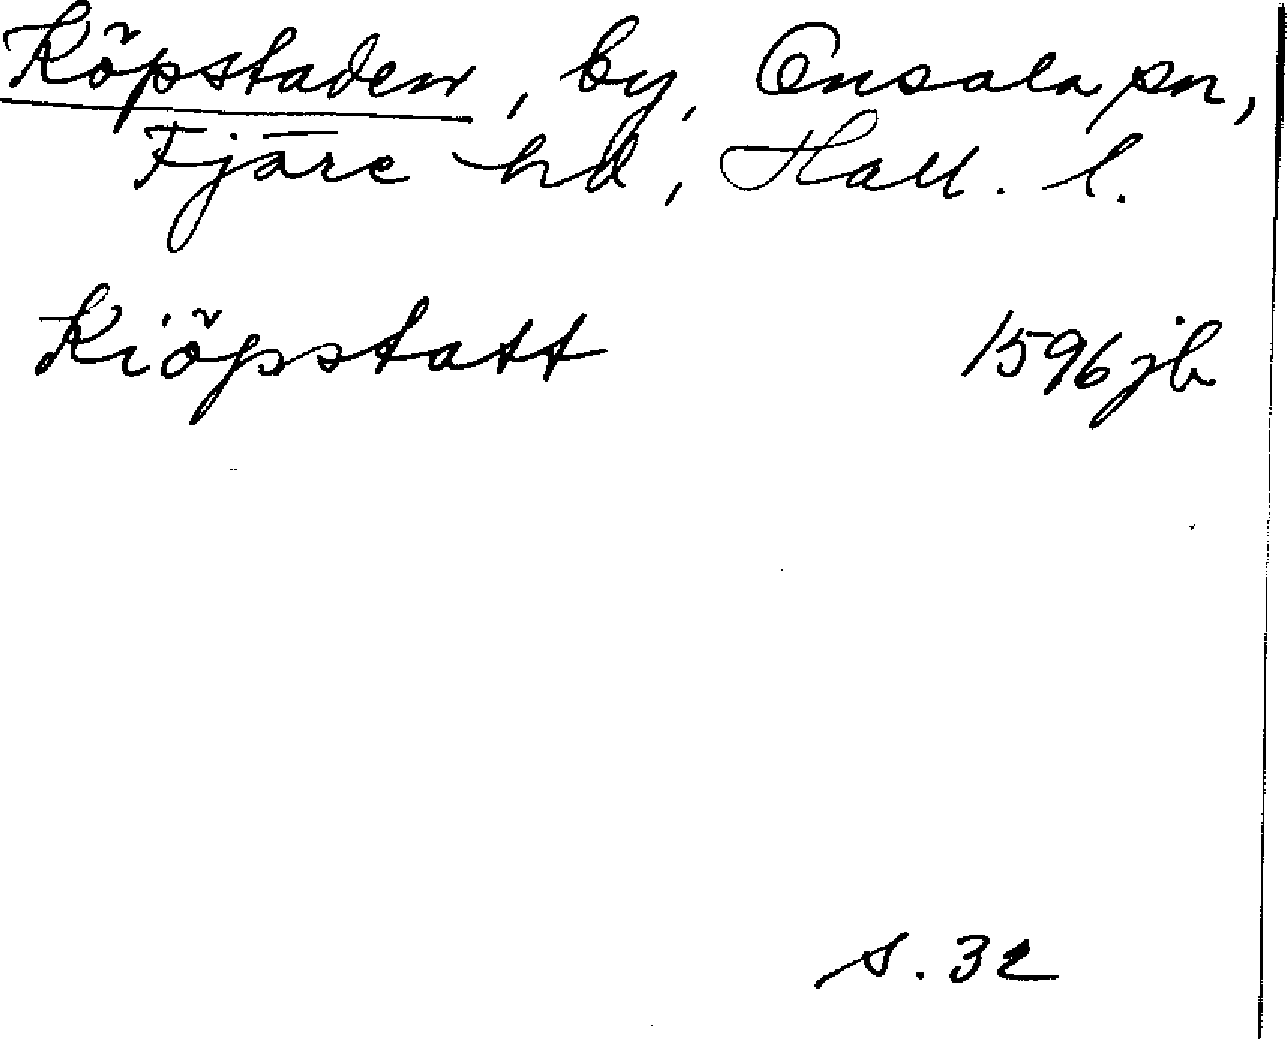 Köpstaden, by, Onsala sn,
Fjäre hd, Hall. l.
Kiöpstatt 1596 jb
s. 32